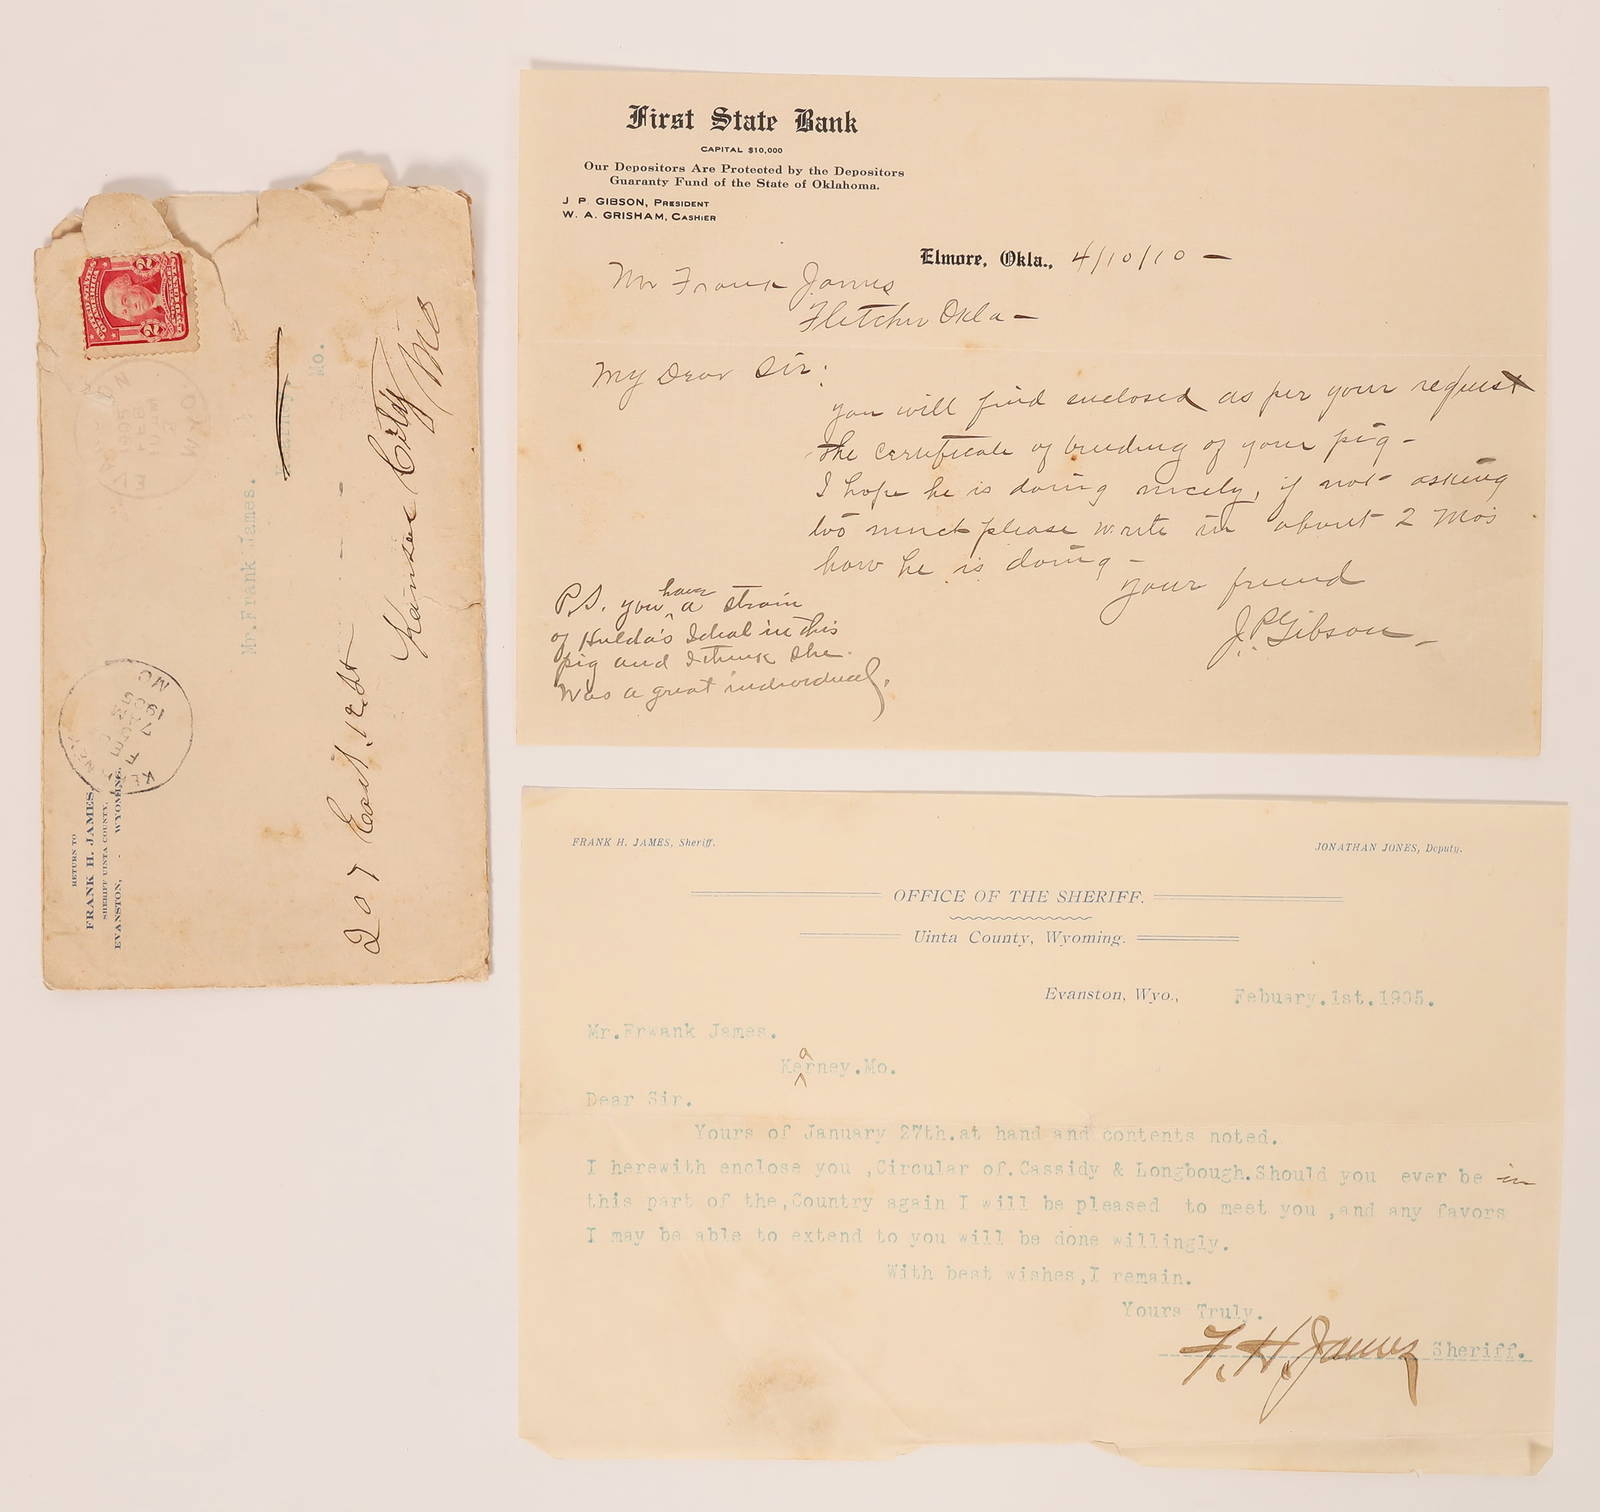 UNITED STATES
OF AMERICA
POSTAGE
2 TWO CENTS 2
RETURN TO
FRANK H. JAMES,
SHERIFF UINTA COUNTY,
EVANSTON, - WYOMING.
Mr.Frank James.
Mo.
207 East 12 St
Kansas City
Mo
First State Bank
CAPITAL $10,000
Our Depositors Are Protected by the Depositors
Guaranty Fund of the State of Oklahoma.
J P GIBSON, PRESIDENT
W. A. GRISHAM, CASHIER
Elmore, Okla., 4/10/10 -
Mr Frank James
Fletcher Okla -
My Dear Sir:
you will find enclosed as per your request
the certificate of breeding of your pig -
I hope he is doing nicely, if not asking
too much please write in about 2 Mo's
how he is doing -
your friend
J.P. Gibson -
P.S. you have a strain
of Hulda's Ideal in this
pig and I think she
was a great individual.
FRANK H. JAMES, Sheriff.
JONATHAN JONES, Deputy.
OFFICE OF THE SHERIFF.
Uinta County, Wyoming.
Evanston, Wyo., Febuary.1st.1905.
Mr.Frwank James.
Kearney.Mo.
Dear Sir.
Yours of January 27th.at hand and contents noted.
I herewith enclose you ,Circular of.Cassidy & Longbough.Should you ever be in
this part of the,Country again I will be pleased to meet you ,and any favors
I may be able to extend to you will be done willingly.
With best wishes,I remain.
Yours Truly.
F. H. James Sheriff.